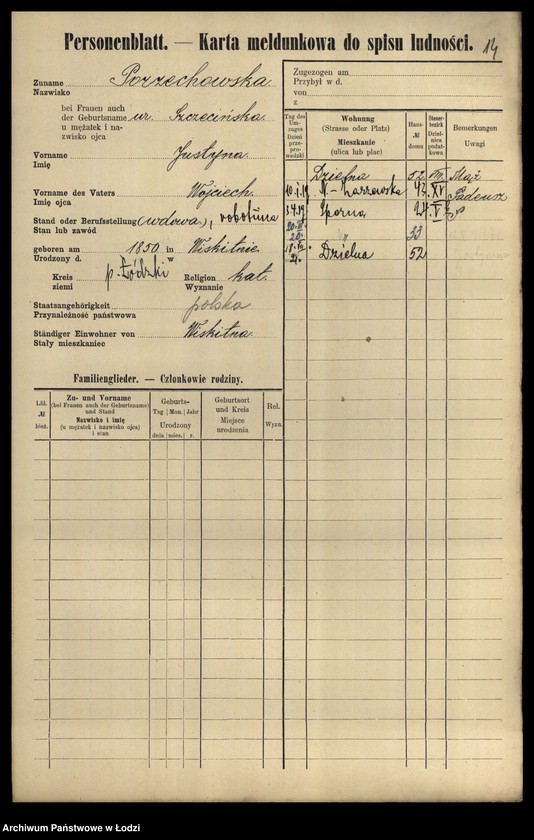 Personenblatt. — Karta meldunkowa do spisu ludności. 14
Zuname
Nazwisko Porzechowska
bei Frauen auch
der Geburtsname ur. Szczecińska
u mężatek i na-
zwisko ojca
Vorname
Imię Justyna
Vorname des Vaters
Imię ojca Wojciech
Stand oder Berufsstellung (wdowa), robotnica
Stan lub zawód
geboren am 1850 in Wiskitnie
Urodzony d. w
Kreis p. Łódzki Religion kat.
ziemi Wyznanie
Staatsangehörigkeit polska
Przynależność państwowa
Ständiger Einwohner von Wiskitna
Stały mieszkaniec
Familienglieder. — Członkowie rodziny.
Lfd. № bież.
Zu- und Vorname
(bei Frauen auch der Geburtsname)
und Stand
Nazwisko i imię
(u mężatek i nazwisko ojca)
i stan
Geburts-
Tag Mon. Jahr
Urodzony
dnia mies. r.
Geburtsort
und Kreis
Miejsce
urodzenia
Rel.
Wyzn.
Zugezogen am
Przybył w d.
von
z
Tag des Um-zuges
Dzień prze-pro-wadzki
Wohnung
(Strasse oder Platz)
Mieszkanie
(ulica lub plac)
Haus-
№
domu
Steuer-bezirk
Dziel-nica podat-kowa
Bemerkungen
Uwagi
Dzielna 52 VII Mąż
10.I.19 42 XV Tadeusz
3.4.19 Sporna 24 V
20. 33
21. Dzielna 52
Archiwum Państwowe w Łodzi